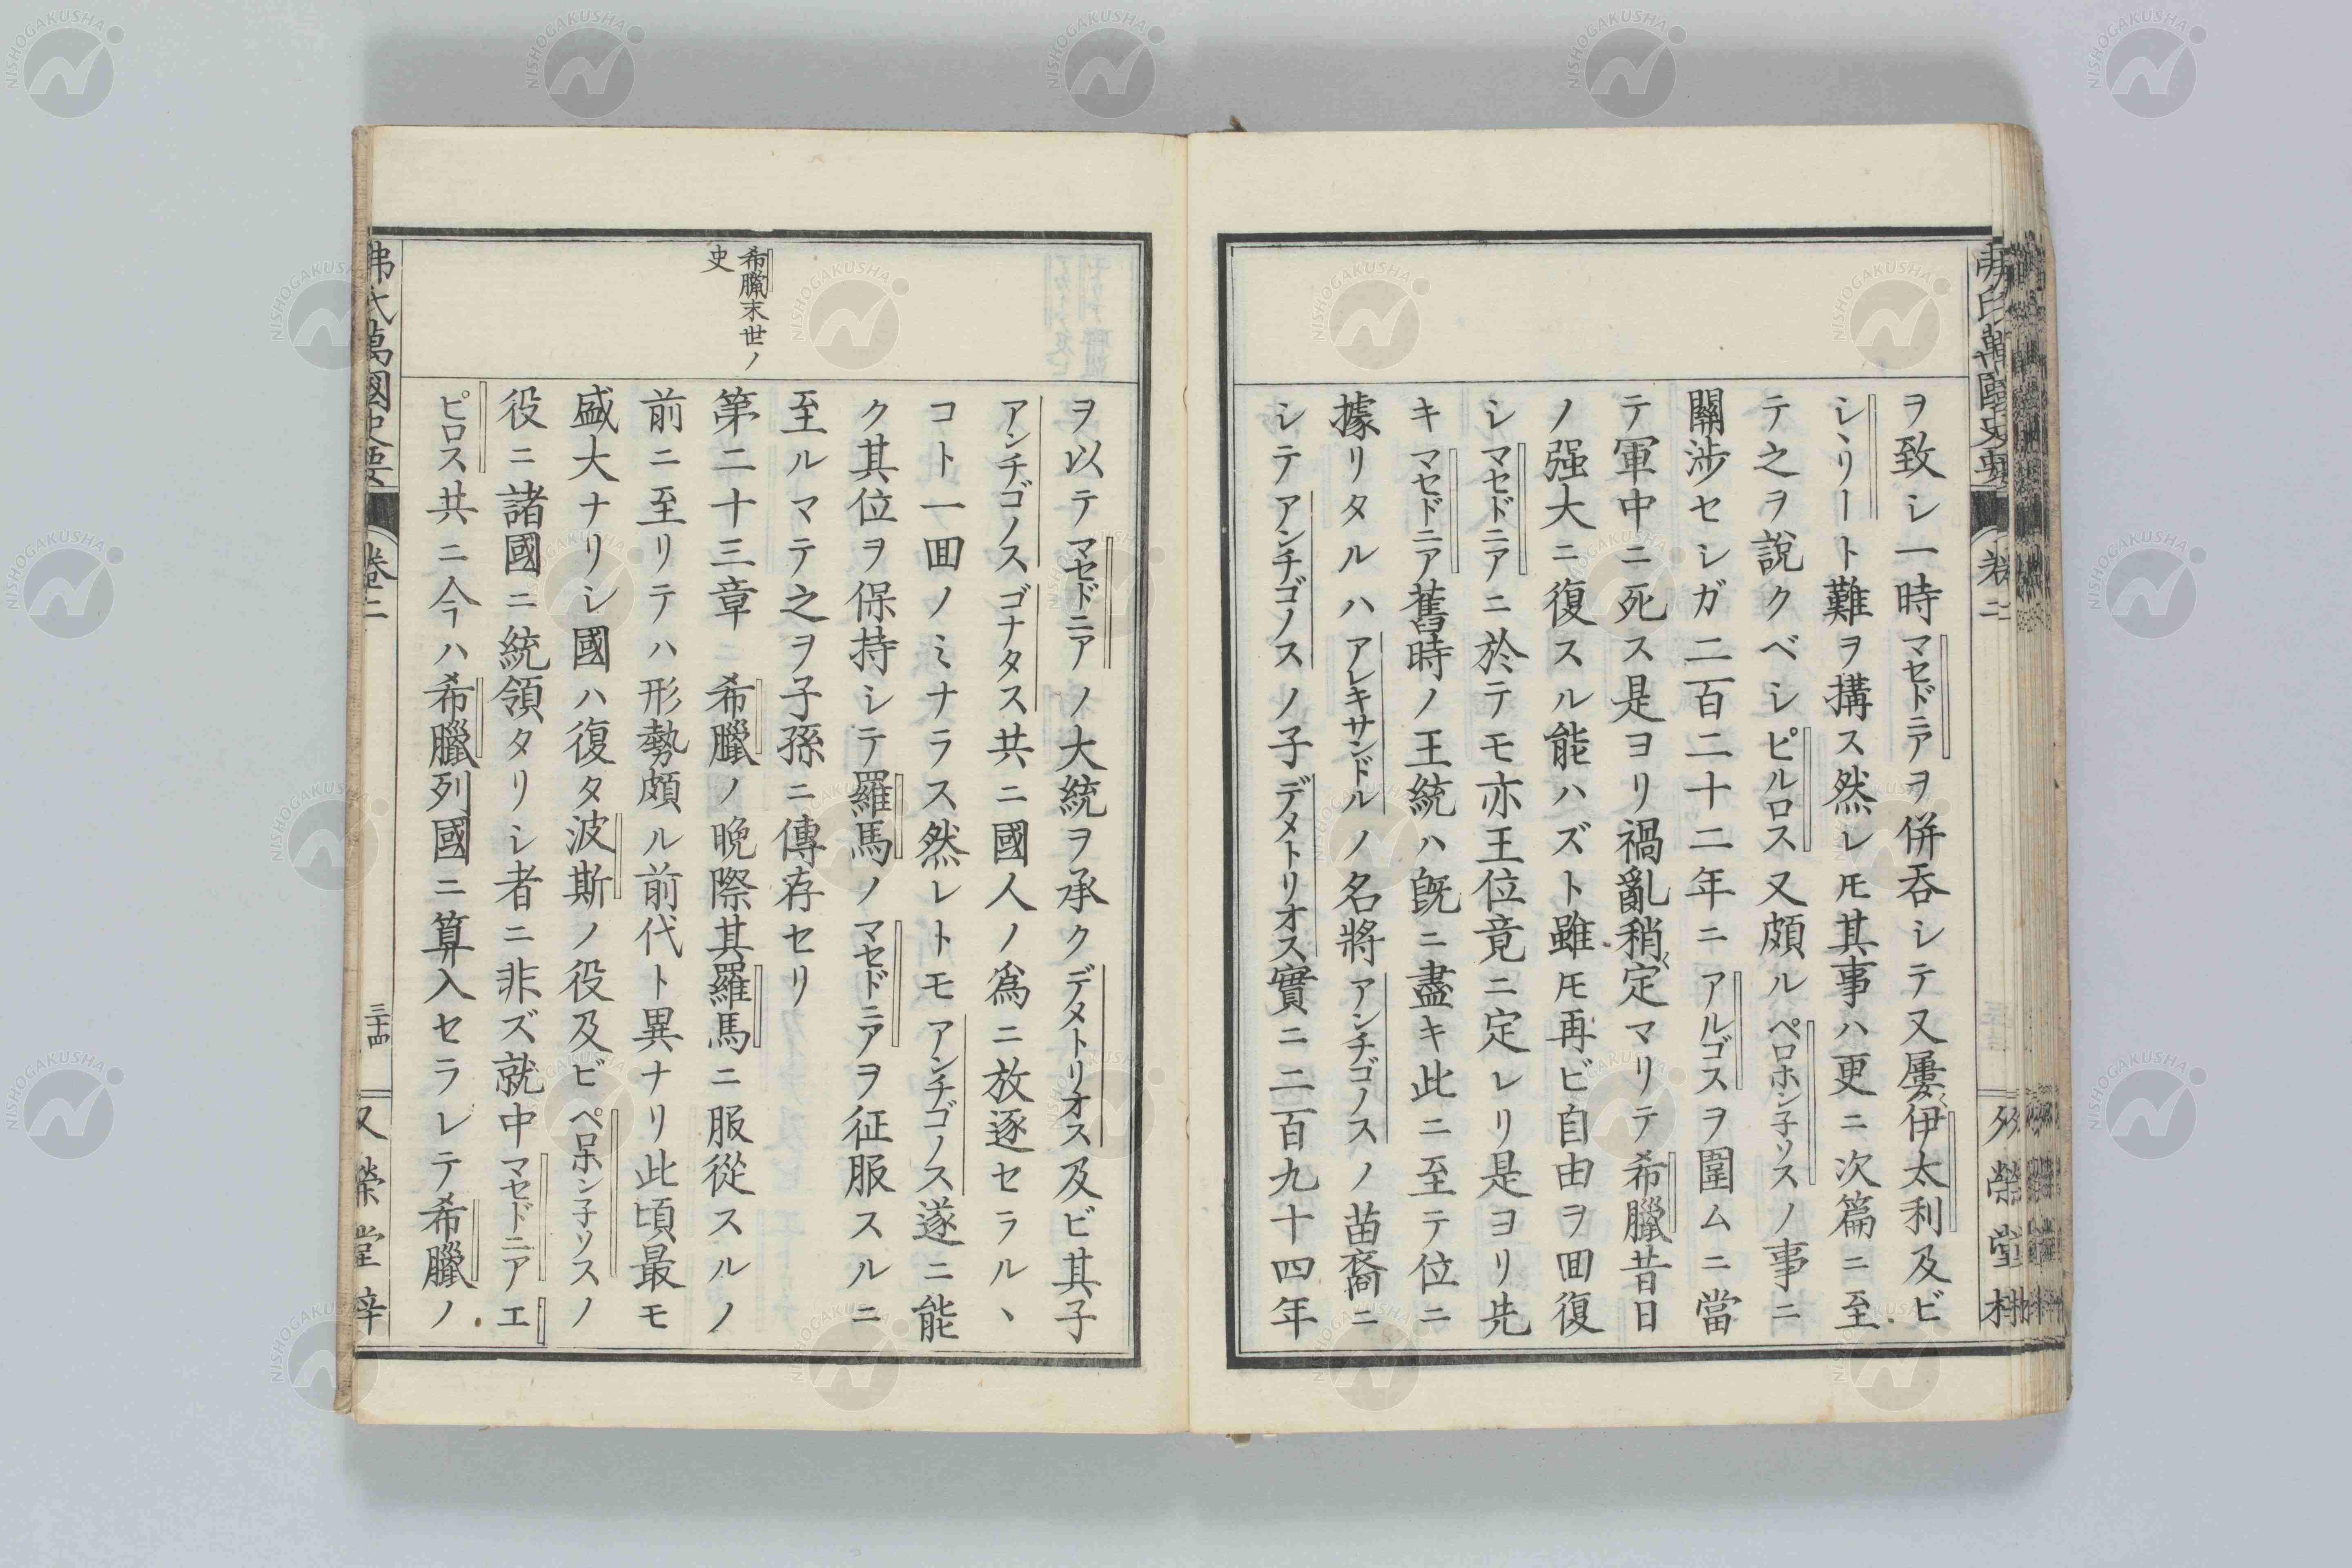 弗氏萬國史要 卷二 又榮堂梓
ヲ致シ一時マセドニアヲ併呑シテ又屢〻伊太利及ビ
シヽリート難ヲ搆ス然レ𪜈其事ハ更ニ次篇ニ至
テ之ヲ説クベシピルロス又頗ルペロホン子ソスノ事ニ
關渉セシガ二百二十二年ニアルゴスヲ圍ムニ當
テ軍中ニ死ス是ヨリ禍亂稍〻定マリテ希臘昔日
ノ强大ニ復スル能ハズト雖𪜈再ビ自由ヲ回復
シマセドニアニ於テモ亦王位竟ニ定レリ是ヨリ先
キマセドニア舊時ノ王統ハ既ニ盡キ此ニ至テ位ニ
據リタルハアレキサンドルノ名將アンチゴノスノ苗裔ニ
シテアンチゴノスノ子デメトリオス實ニ二百九十四年
ヲ以テマセドニアノ大統ヲ承クデメトリオス及ビ其子
アンチゴノスゴナタス共ニ國人ノ爲ニ放逐セラルヽ
コト一回ノミナラス然レトモアンチゴノス遂ニ能
ク其位ヲ保持シテ羅馬ノマセドニアヲ征服スルニ
至ルマテ之ヲ子孫ニ傳存セリ
希臘末世ノ
史
第二十三章 希臘ノ晩際其羅馬ニ服從スルノ
前ニ至リテハ形勢頗ル前代ト異ナリ此頃最モ
盛大ナリシ國ハ復タ波斯ノ役及ビペロホン子ソスノ
役ニ諸國ニ統領タリシ者ニ非ズ就中マセドニアエ
ピロス共ニ今ハ希臘列國ニ算入セラレテ希臘ノ
弗氏萬國史要 卷二 三十四 又榮堂梓
NISHOGAKUSHA